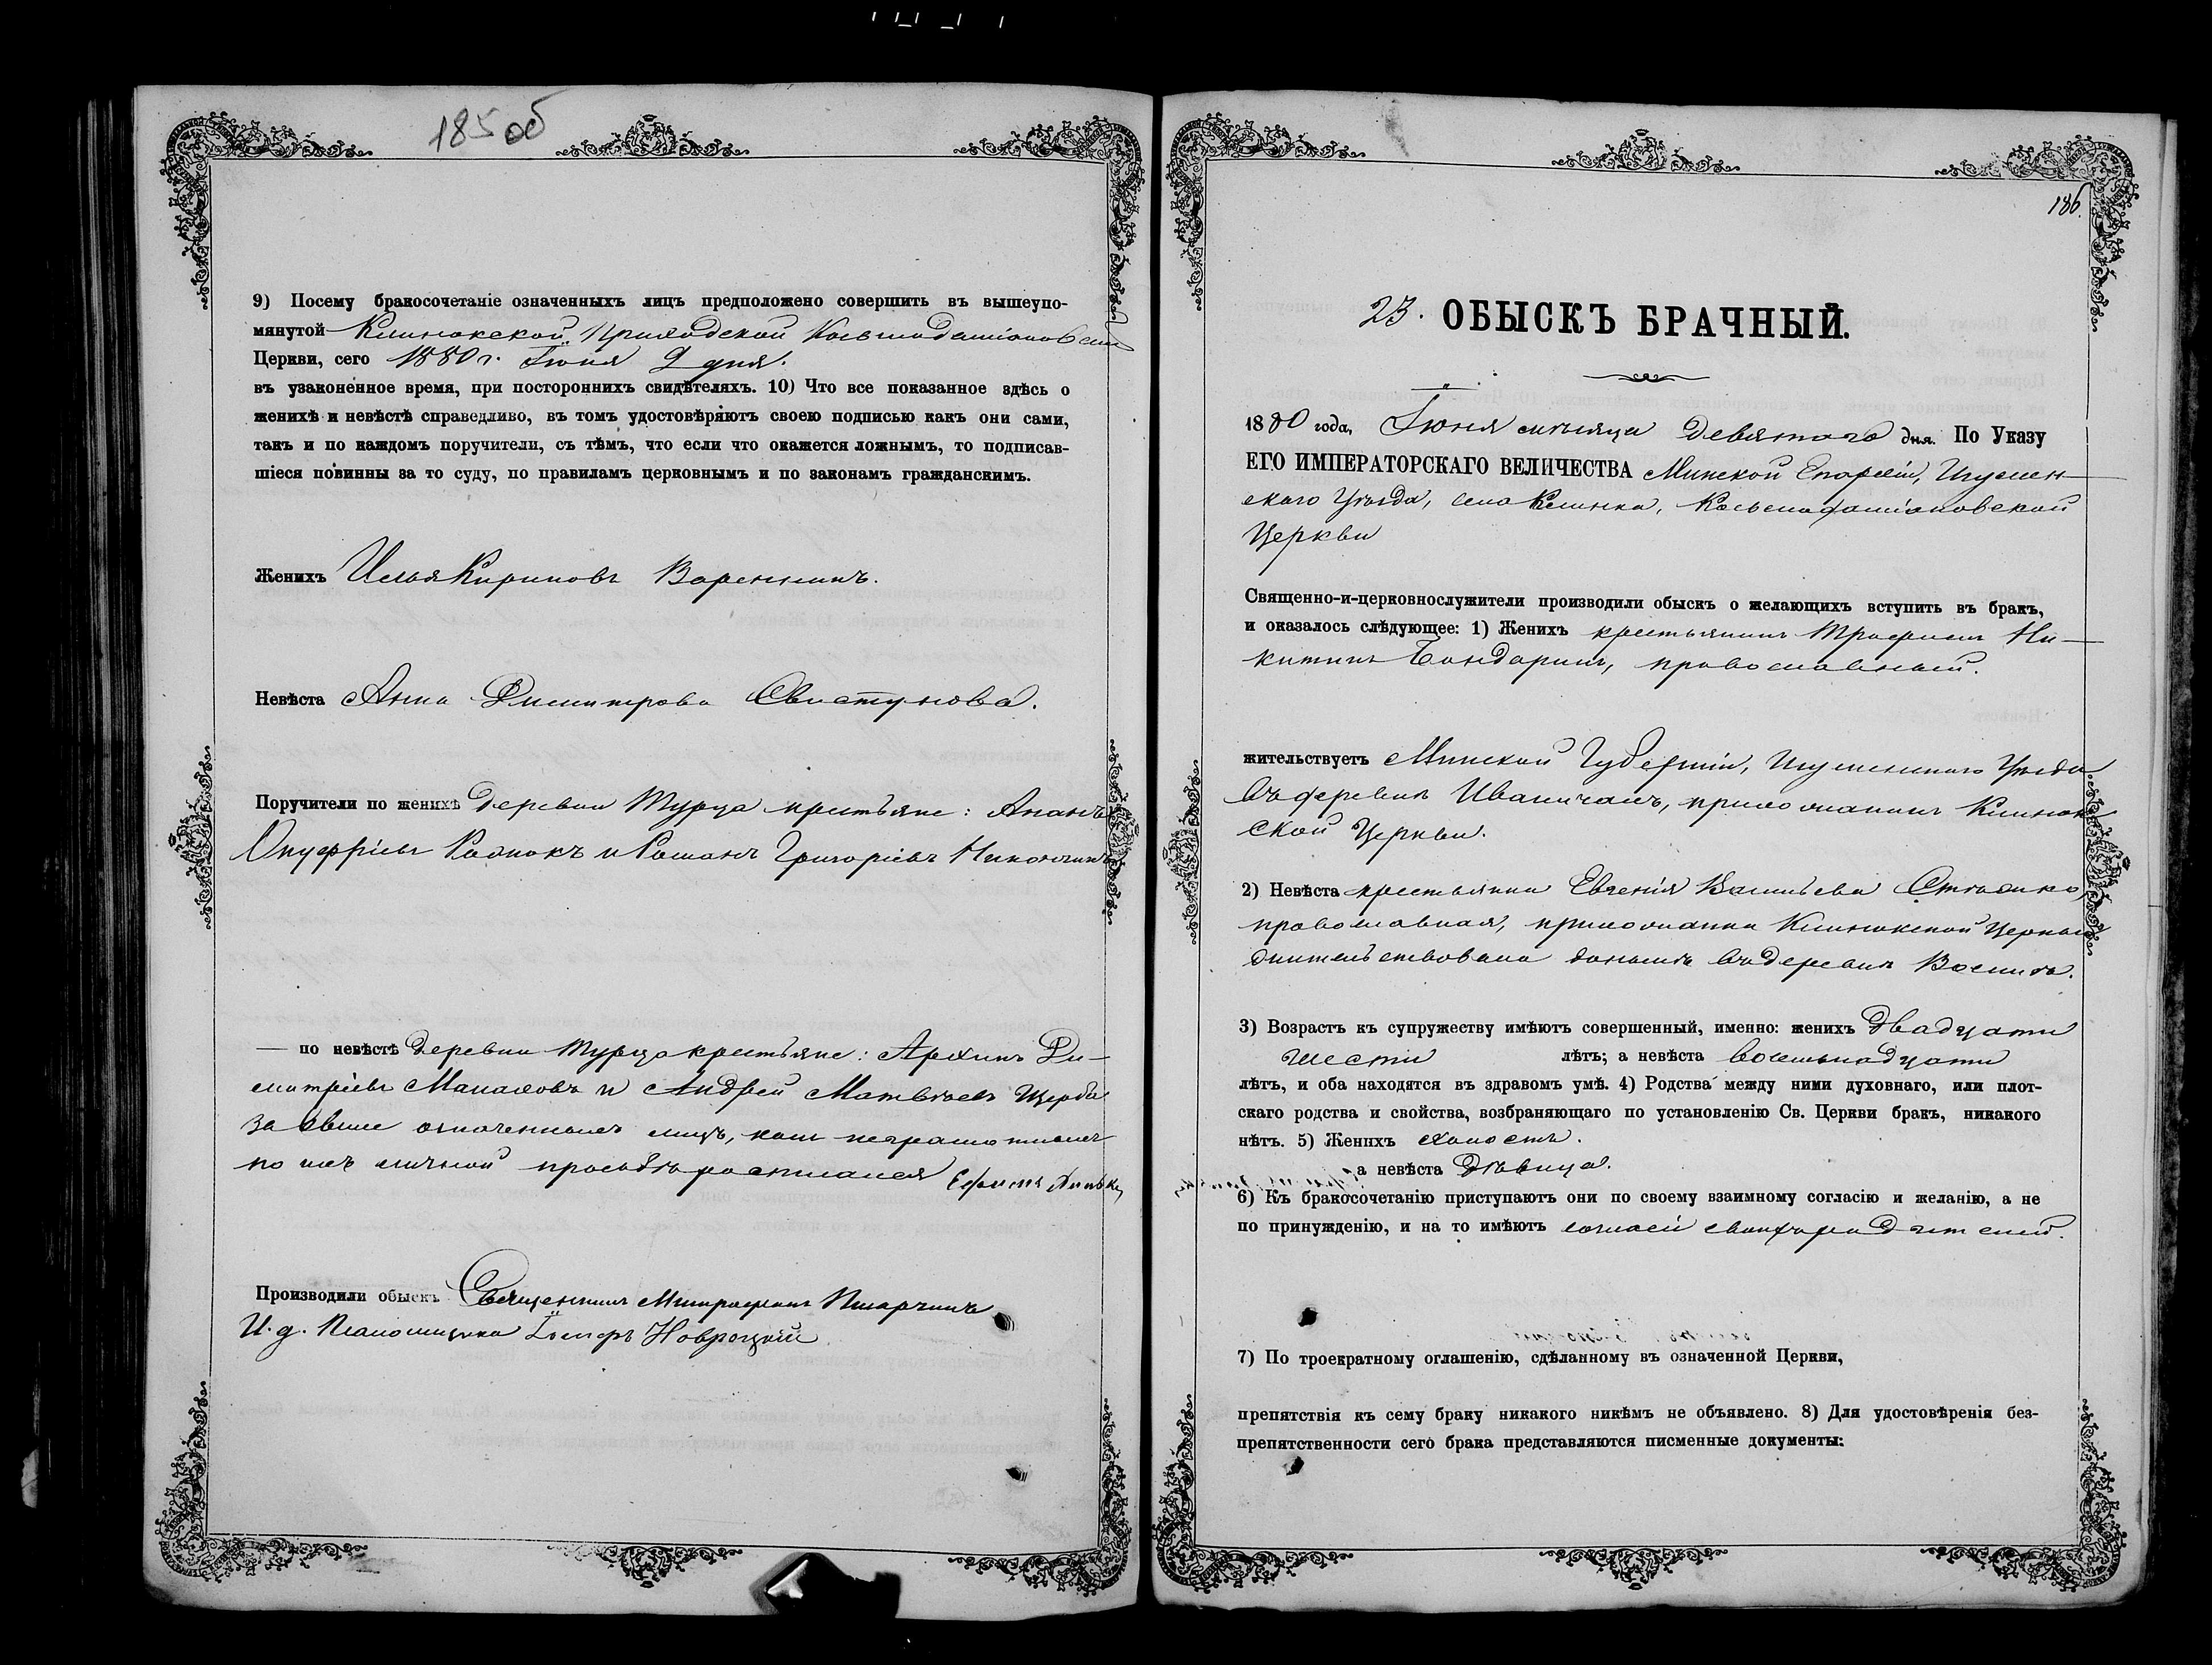 185 об
9) Посему бракосочетаніе означенныхъ лицъ предположено совершить въ вышеупо-
мянутой Клинокской Приходской Косьмодаміановской
Церкви, сего 1880 г. Іюня 9 дня.
въ узаконенное время, при постороннихъ свидѣтеляхъ. 10) Что все показанное здѣсь о
женихѣ и невѣстѣ справедливо, въ томъ удостовѣряютъ своею подписью какъ они сами,
такъ и по каждомъ поручители, съ тѣмъ, что если что окажется ложнымъ, то подписав-
шіеся повинны за то суду, по правиламъ церковнымъ и по законамъ гражданскимъ.
Женихъ Илья Кириловъ
Невѣста Анна Димитрова Свистунова.
Поручители по женихѣ деревни Турца крестьяне:
Онуфріевъ и Романъ Григоріевъ
— по невѣстѣ деревни Турца крестьяне: Архипъ Ди-
митріевъ и Андрей Матвѣевъ Щерба
за выше означенныхъ лицъ, какъ неграмотныхъ
по ихъ личной просьбѣ росписался
Производили обыскъ Священникъ Митрофанъ
И. д. Псаломщика Іосифъ Новроцкій
186.
23. ОБЫСКЪ БРАЧНЫЙ.
1880 года, Іюня мѣсяца девятаго дня. По Указу
ЕГО ИМПЕРАТОРСКАГО ВЕЛИЧЕСТВА Минской Епархіи, Игумен-
скаго Уѣзда, села Клинка, Косьмодаміановской
Церкви
Священно-и-церковнослужители производили обыскъ о желающихъ вступить въ бракъ,
и оказалось слѣдующее: 1) Женихъ крестьянинъ Трофимъ Ни-
китинъ Бондаринъ, православный.
жительствуетъ Минской Губерніи, Игуменскаго Уѣзда
въ деревнѣ Иваничахъ, прихожанинъ Клинок-
ской Церкви.
2) Невѣста крестьянка Евгенія Васильева
православная, прихожанка Клинокской Церкви
жительствовала донынѣ въ деревнѣ
3) Возрастъ къ супружеству имѣютъ совершенный, именно: женихъ двадцати
шести лѣтъ; а невѣста восемьнадцати
лѣтъ, и оба находятся въ здравомъ умѣ. 4) Родства между ними духовнаго, или плот-
скаго родства и свойства, возбраняющаго по установленію Св. Церкви бракъ, никакого
нѣтъ. 5) Женихъ холостъ.
а невѣста дѣвица.
6) Къ бракосочетанію приступаютъ они по своему взаимному согласію и желанію, а не
по принужденію, и на то имѣютъ согласіе своихъ родителей.
7) По троекратному оглашенію, сдѣланному въ означенной Церкви,
препятствія къ сему браку никакого никѣмъ не объявлено. 8) Для удостовѣренія без-
препятственности сего брака представляются писменные документы: